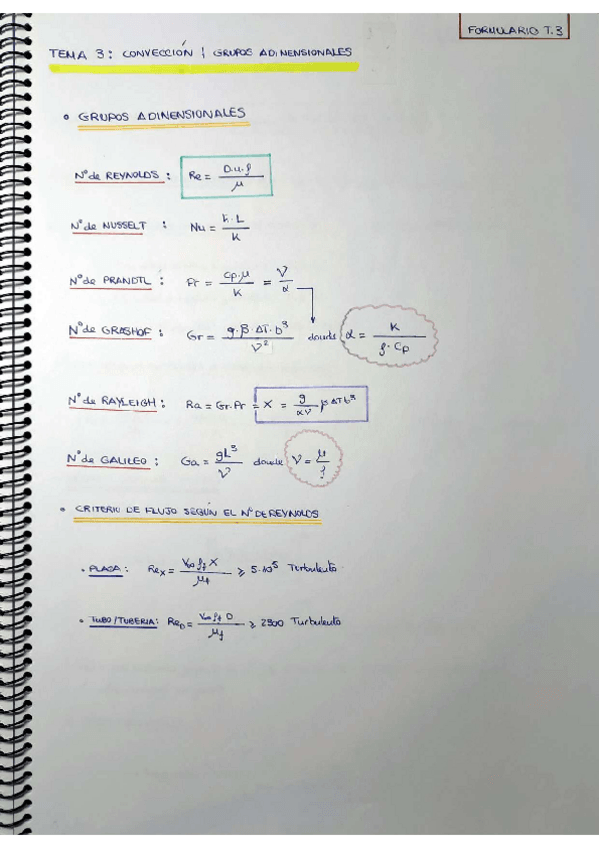 FORMULARIO T.3
TEMA 3: CONVECCIÓN | GRUPOS ADIMENSIONALES
• GRUPOS ADIMENSIONALES
Nº de REYNOLDS : Re = D.u.ρ / μ
Nº de NUSSELT : Nu = h.L / K
Nº de PRANDTL : Pr = Cp.μ / K = ν / α
Nº de GRASHOF : Gr = g.β.ΔT.b³ / ν² donde α = K / ρ.Cp
Nº de RAYLEIGH : Ra = Gr.Pr = X = g / αν β ΔT b³
Nº de GALILEO : Ga = gL³ / ν donde ν = μ / ρ
• CRITERIO DE FLUJO SEGÚN EL Nº DE REYNOLDS
• PLACA : Reₓ = V∞ ρf X / μf ⩾ 5·10⁵ Turbulento
• TUBO/TUBERIA: Re_D = V∞ ρf D / μf ⩾ 2300 Turbulento